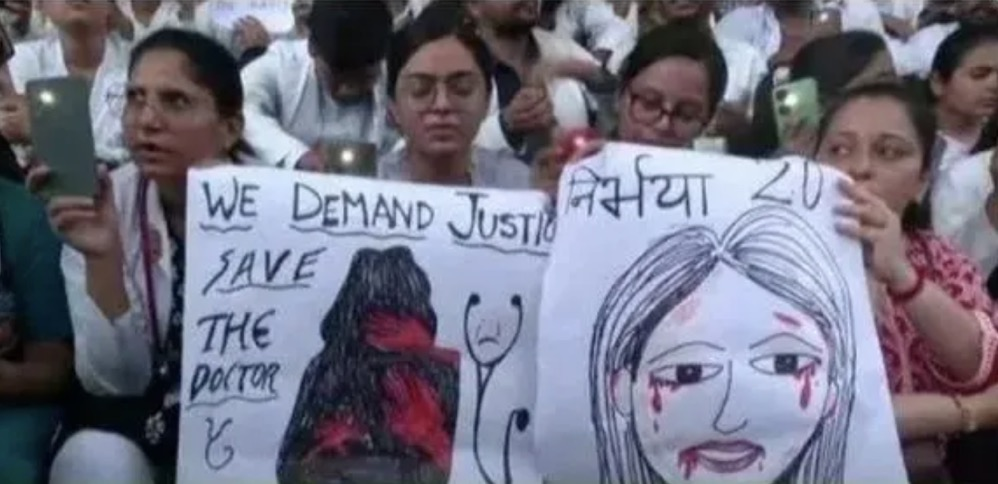 WE DEMAND JUSTIC
SAVE
THE
DOCTOR
निर्भया 2.0